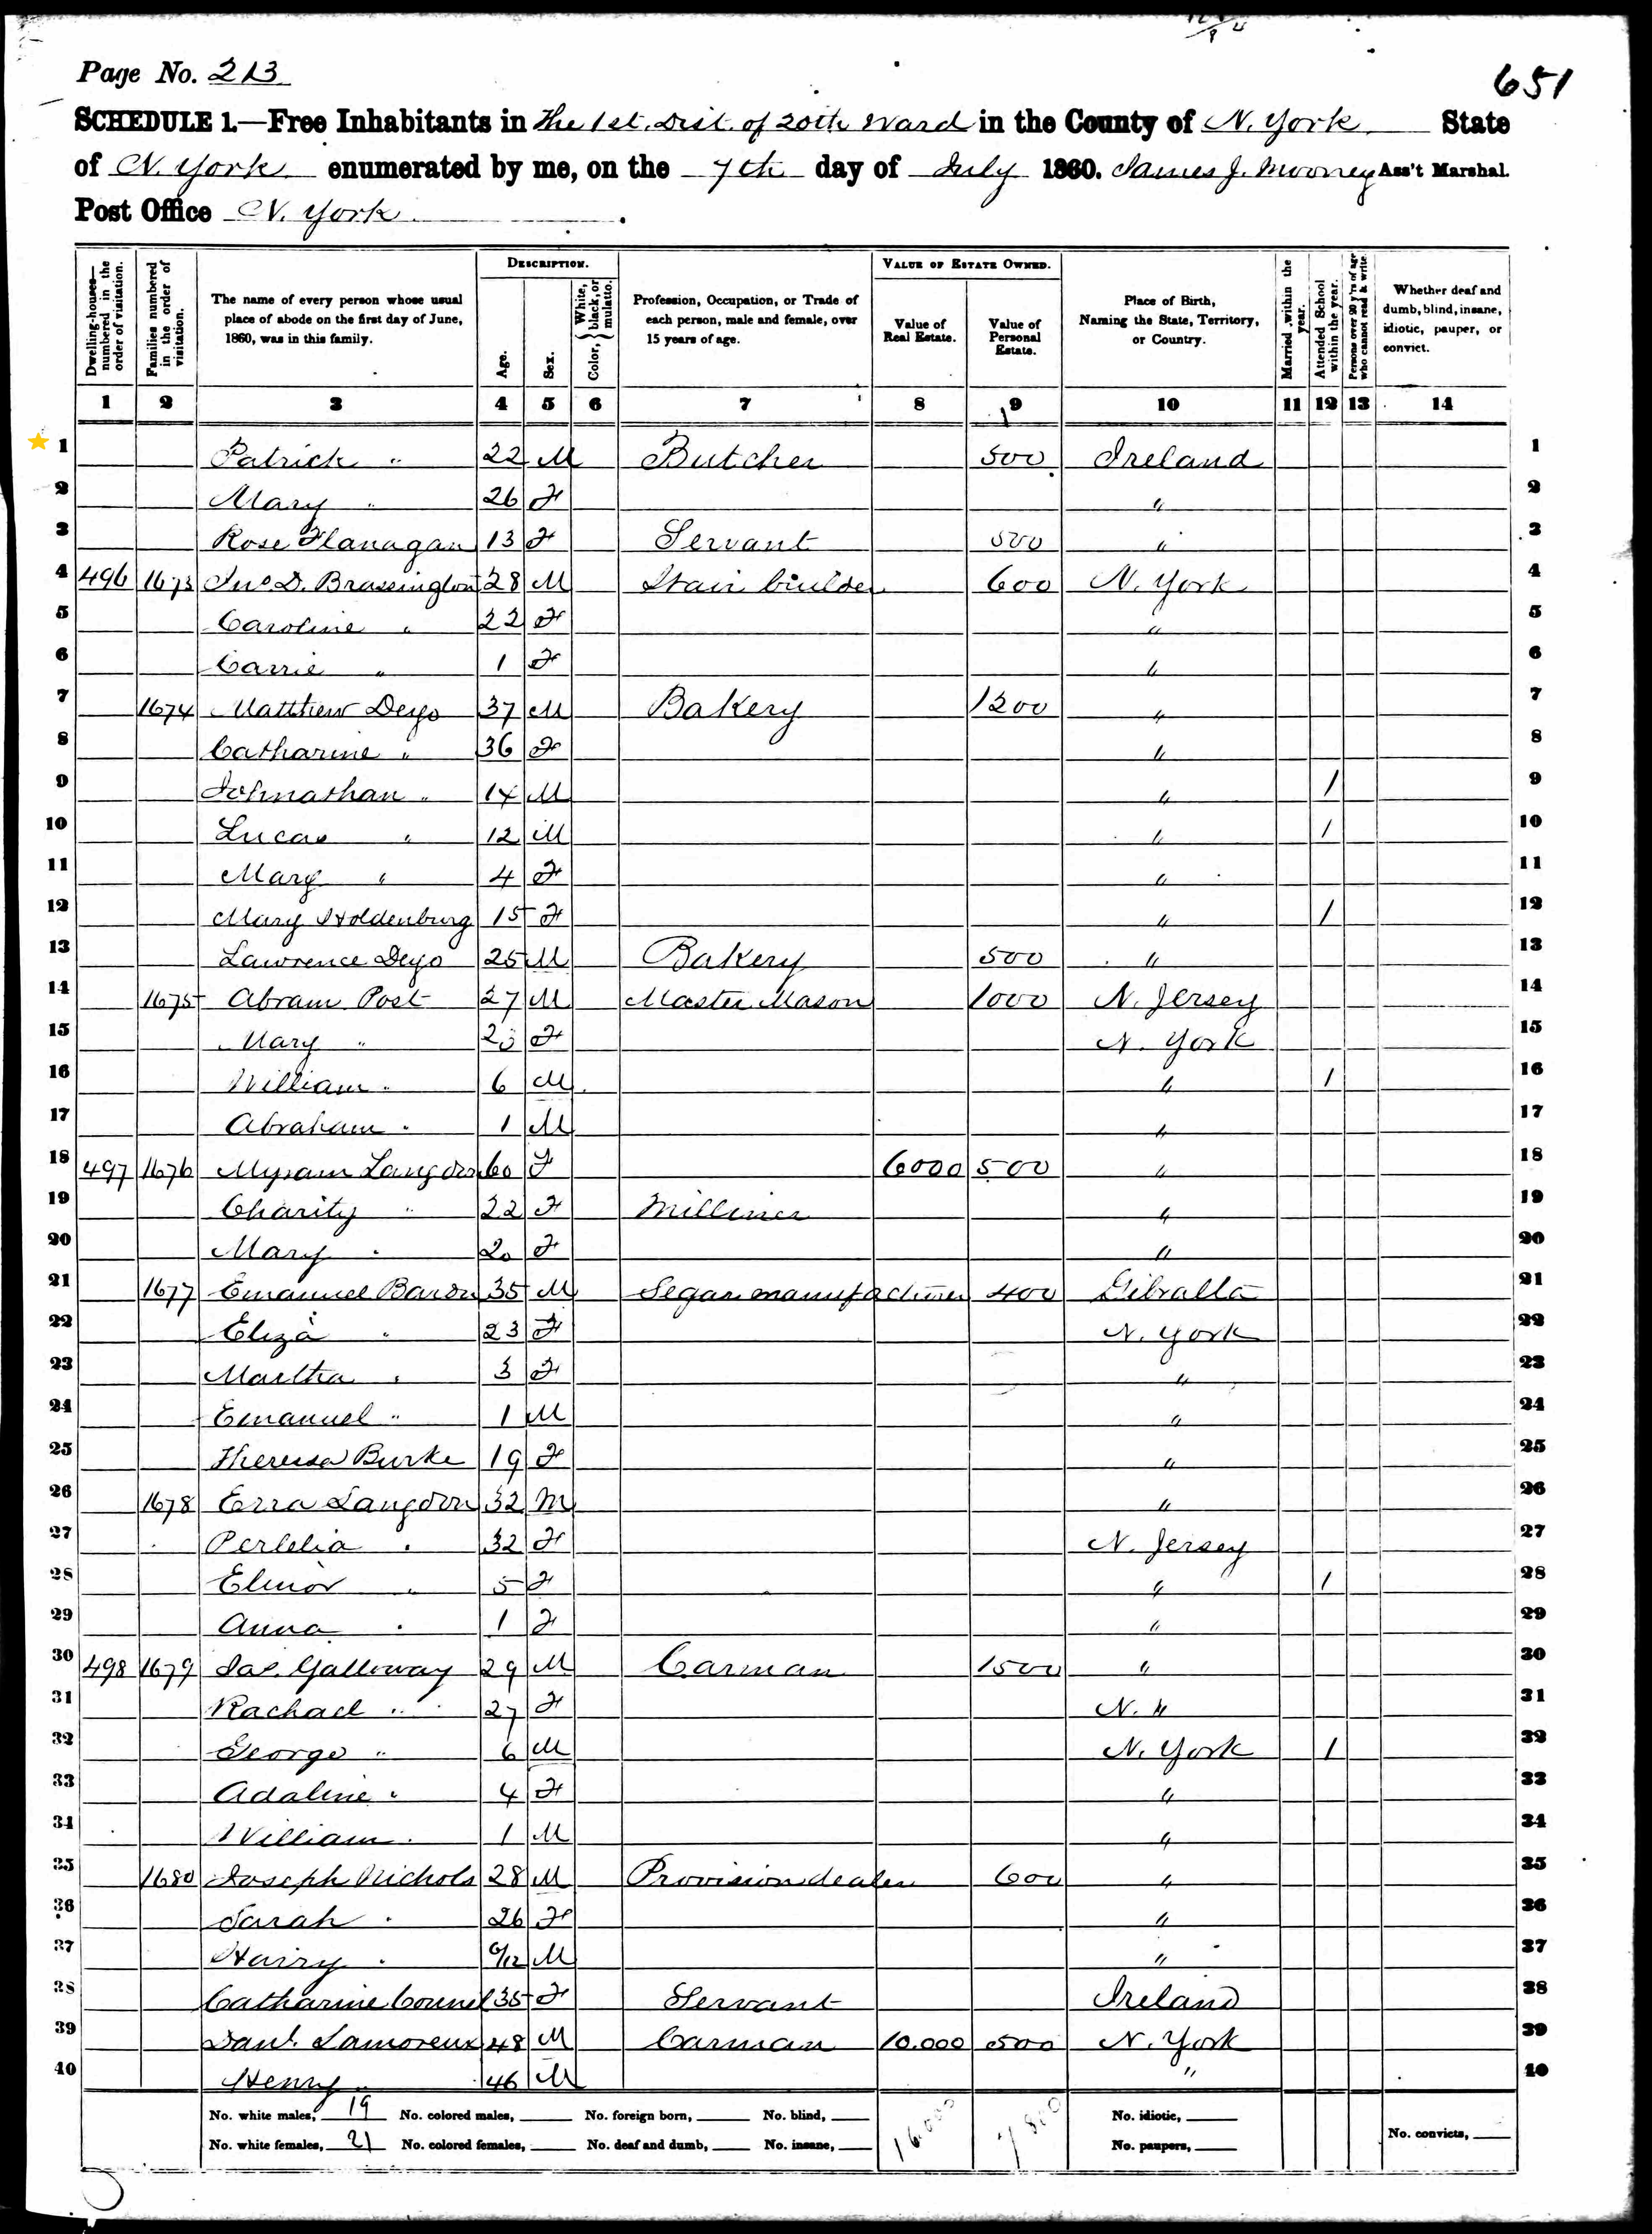 Page No. 213
651
SCHEDULE 1.—Free Inhabitants in The 1st. Dist. of 20th Ward in the County of N. York State
of N. York enumerated by me, on the 7th day of July 1860. James J. Mooney Ass't Marshal.
Post Office N. York.
Dwelling-houses—numbered in the order of visitation.
Families numbered in the order of visitation.
The name of every person whose usual place of abode on the first day of June, 1860, was in this family.
DESCRIPTION.
Age.
Sex.
Color, { White, black, or mulatto.
Profession, Occupation, or Trade of each person, male and female, over 15 years of age.
VALUE OF ESTATE OWNED.
Value of Real Estate.
Value of Personal Estate.
Place of Birth, Naming the State, Territory, or Country.
Married within the year.
Attended School within the year.
Persons over 20 y'rs of age who cannot read & write.
Whether deaf and dumb, blind, insane, idiotic, pauper, or convict.
1 2 3 4 5 6 7 8 9 10 11 12 13 14
1 Patrick " 22 M Butcher 500 Ireland 1
2 Mary " 26 F " 2
3 Rose Flanagan 13 F Servant 500 " 3
4 496 1673 Jno. D. Brassington 28 M Stair builder 600 N. York 4
5 Caroline " 22 F " 5
6 Carrie " 1 F " 6
7 1674 Matthew Deyo 37 M Bakery 1200 " 7
8 Catharine " 36 F " 8
9 Johnathan " 14 M " / 9
10 Lucas " 12 M " / 10
11 Mary " 4 F " 11
12 Mary Holdenburg 15 F " / 12
13 Lawrence Deyo 25 M Bakery 500 " 13
14 1675 Abram Post 27 M Master Mason 1000 N. Jersey 14
15 Mary " F N. York 15
16 William " 6 M " / 16
17 Abraham " 1 M " 17
18 497 1676 Myram Langdon 60 F 6000 500 " 18
19 Charity " 22 F Milliner " 19
20 Mary " 20 F " 20
21 1677 Emanuel Baron 35 M Segar manufacturer 400 Gibralta 21
22 Eliza " 23 F N. York 22
23 Martha " 3 F " 23
24 Emanuel " 1 M " 24
25 Theresa Burke 19 F " 25
26 1678 Ezra Langdon 32 M " 26
27 Perlelia " 32 F N. Jersey 27
28 Elinor " 5 F " / 28
29 Anna " 1 F " 29
30 498 1679 Jas. Galloway 29 M Carman 1500 " 30
31 Rachael " 27 F N. " 31
32 George " 6 M N. York / 32
33 Adaline " 4 F " 33
34 William " 1 M " 34
35 1680 Joseph Nichols 28 M Provision dealer 600 " 35
36 Sarah " 26 F " 36
37 Hairry " M " 37
38 Catharine Counel 35 F Servant Ireland 38
39 Danl. Lamoreux 48 M Carman 10.000 500 N. York 39
40 Henry " 46 M " 40
No. white males, 19 No. colored males, No. foreign born, No. blind, 16.000 7800 No. idiotic,
No. white females, 21 No. colored females, No. deaf and dumb, No. insane, No. paupers, No. convicts,